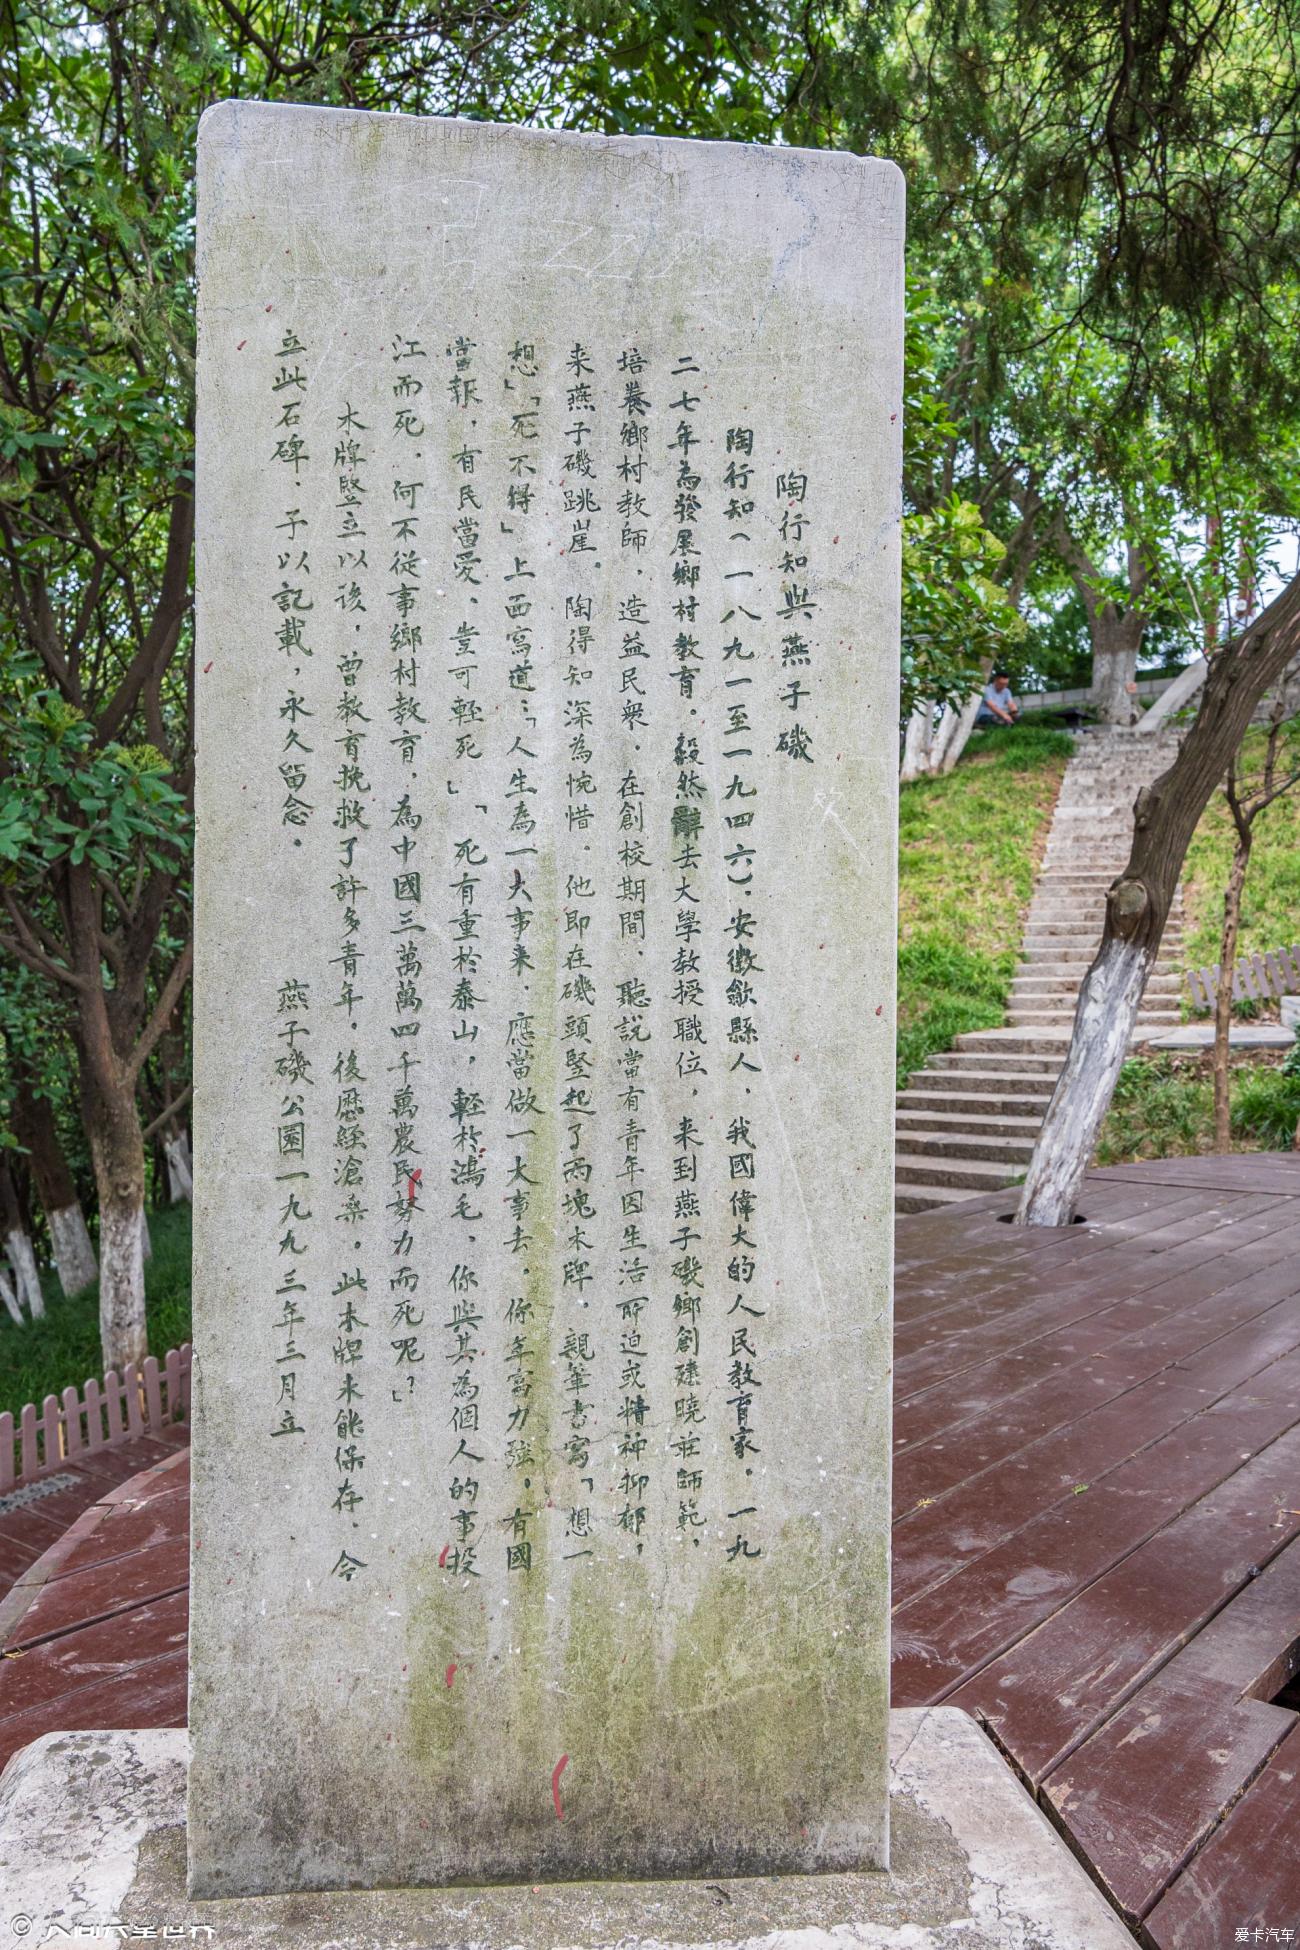 陶行知與燕子磯
陶行知（一八九一至一九四六），安徽歙縣人，我國偉大的人民教育家。一九
二七年為發展鄉村教育。毅然辭去大學教授職位，来到燕子磯鄉創建曉莊師範，
培養鄉村教師，造益民衆，在創校期間，聽説當有青年因生活所迫或精神抑郁，
来燕子磯跳崖。陶得知深為惋惜。他即在磯頭竪起了两塊木牌。親筆書寫「想一
想」「死不得」上面寫道：「人生為一大事来，應當做一大事去。你年富力強。有國
當報，有民當愛，豈可輕死」「死有重於泰山，輕於鴻毛，你與其為個人的事投
江而死，何不從事鄉村教育，為中國三萬萬四千萬農民努力而死呢？」
木牌竪立以後，曾教育挽救了許多青年。後歷經滄桑。此木牌未能保存，今
立此石碑，予以記載，永久留念。　燕子磯公園一九九三年三月立
爱卡汽车